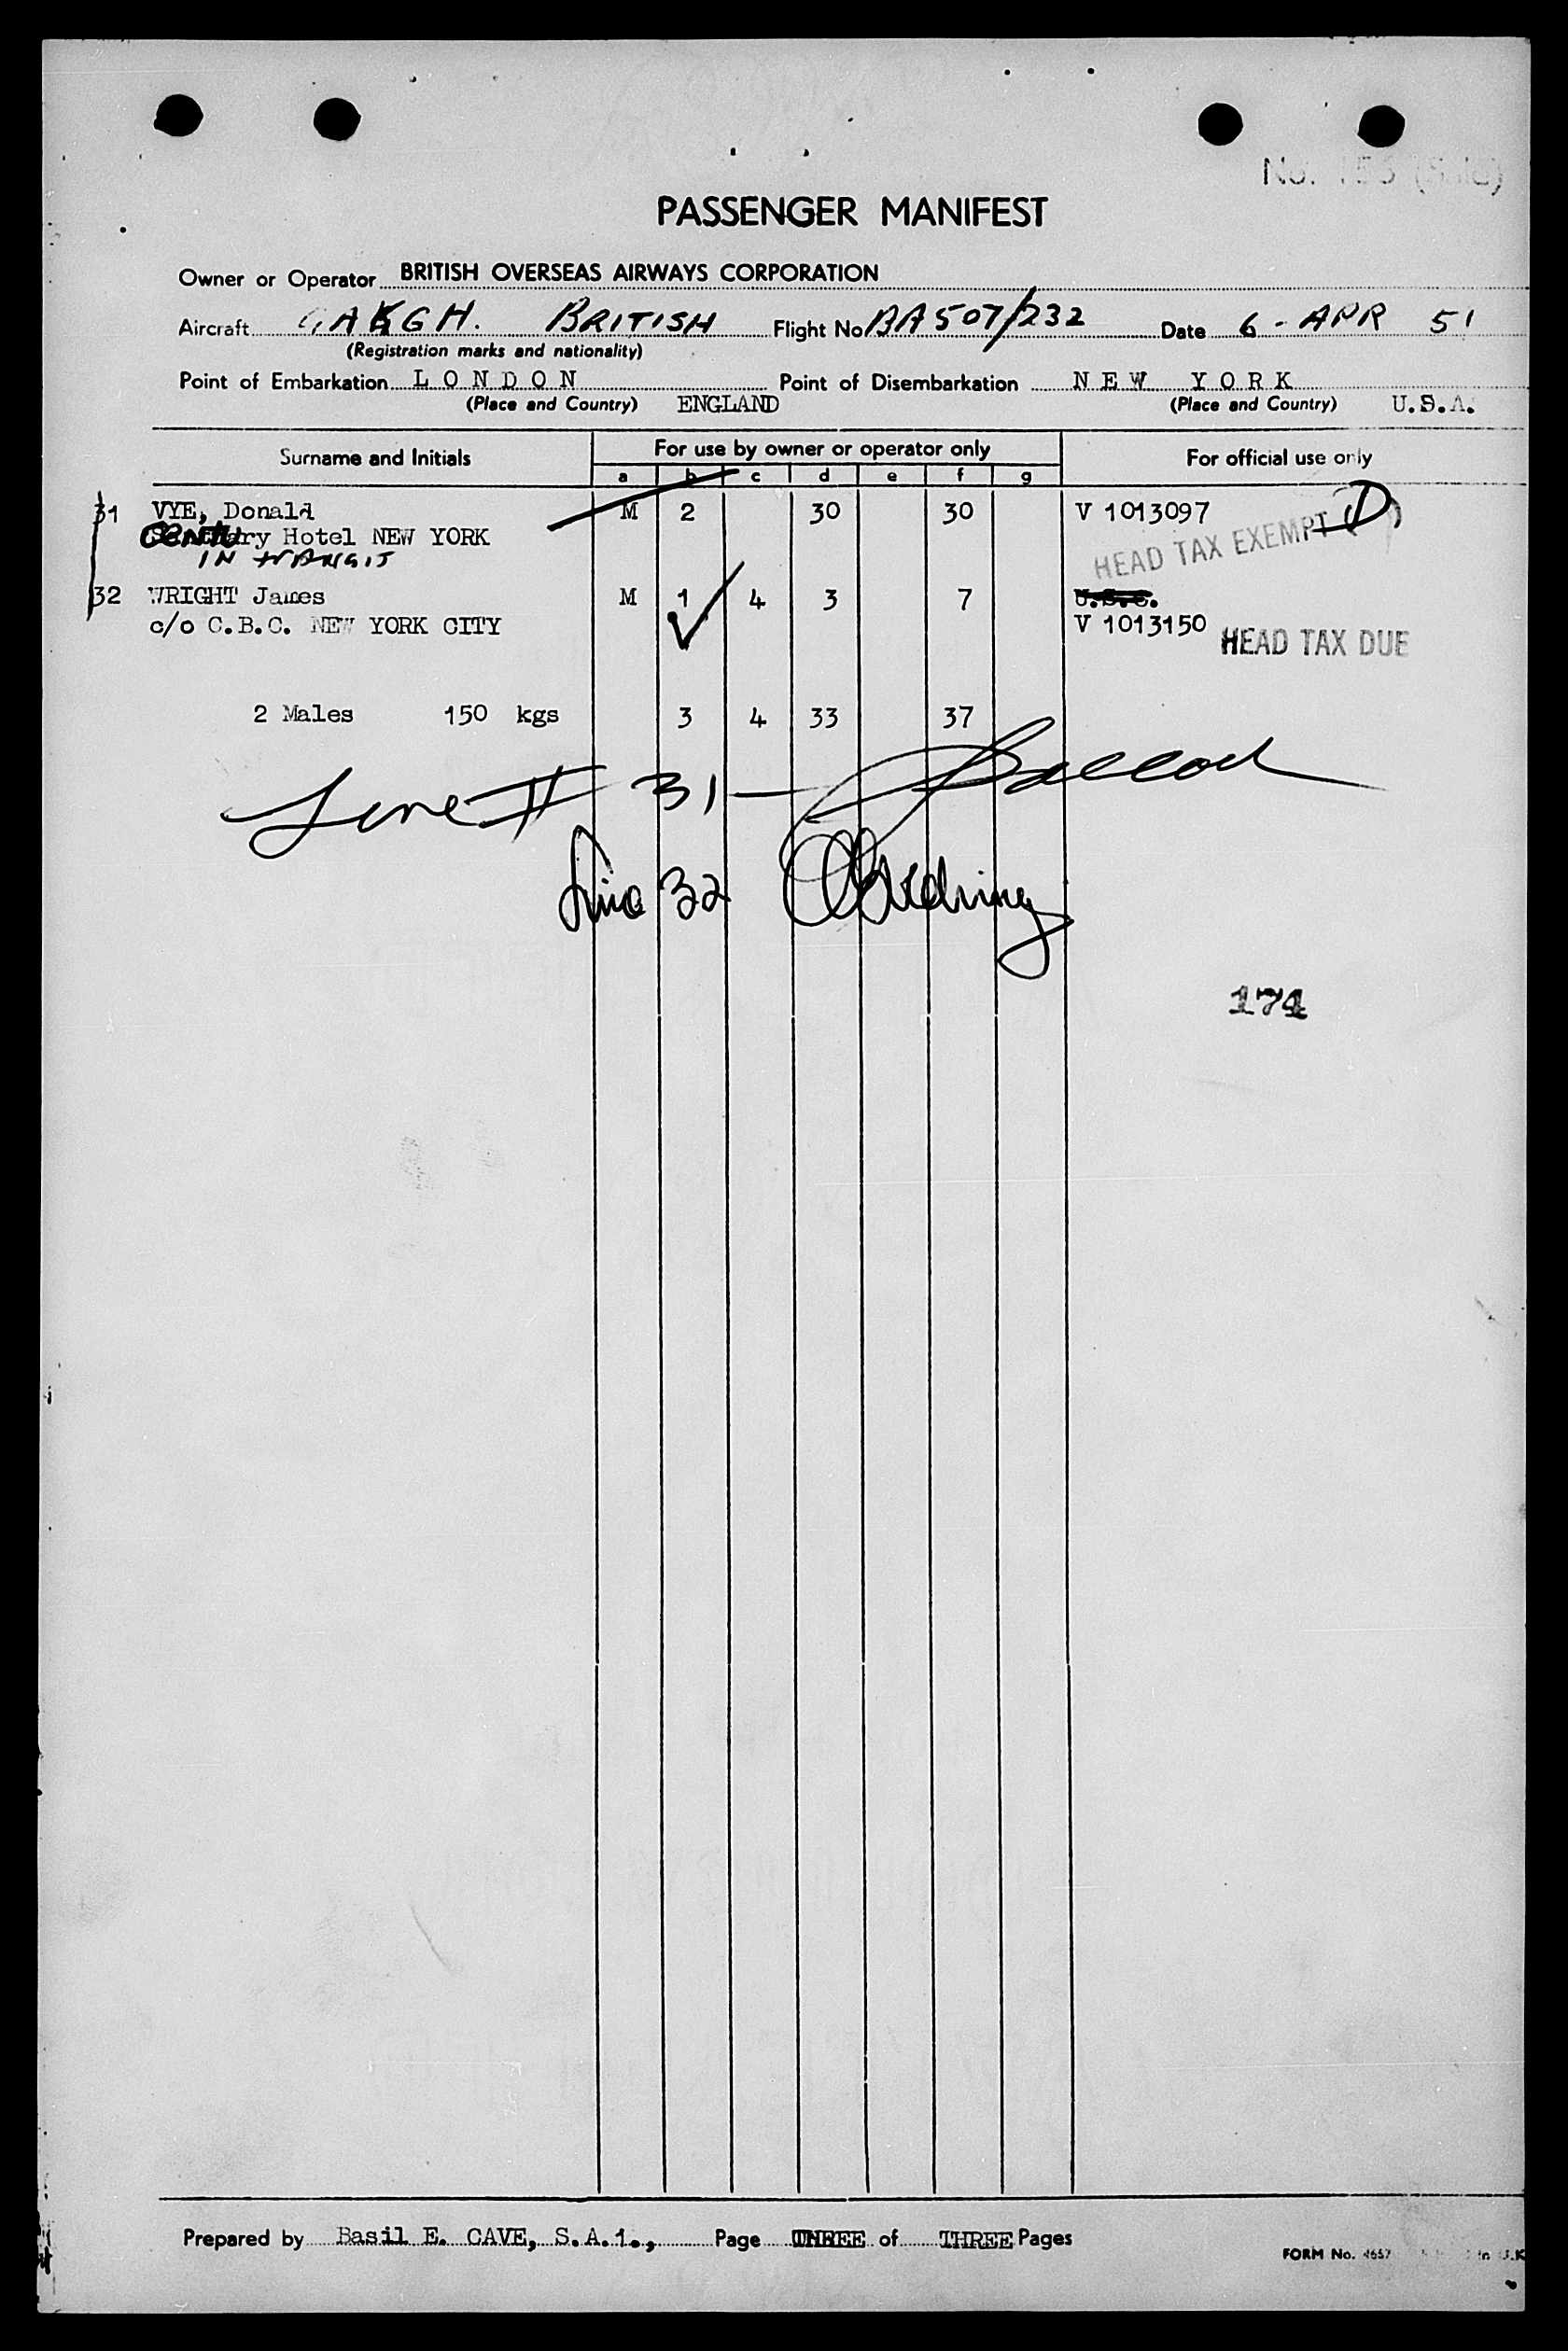 PASSENGER MANIFEST
Owner or Operator BRITISH OVERSEAS AIRWAYS CORPORATION
Aircraft GAKGH. BRITISH Flight No BA507/232 Date 6 - APR 51
(Registration marks and nationality)
Point of Embarkation LONDON Point of Disembarkation NEW YORK
(Place and Country) ENGLAND (Place and Country) U.S.A.
Surname and Initials For use by owner or operator only For official use only
a b c d e f g
31 VYE, Donald M 2 30 30 V 1013097
Hotel NEW YORK HEAD TAX EXEMPT
IN TRANSIT
32 WRIGHT James M 1 4 3 7 U.S.C.
c/o C.B.C. NEW YORK CITY V 1013150 HEAD TAX DUE
2 Males 150 kgs 3 4 33 37
Line # 31 —
Line 32
174
Prepared by Basil E. CAVE, S.A.1., Page THREE of THREE Pages
FORM No.